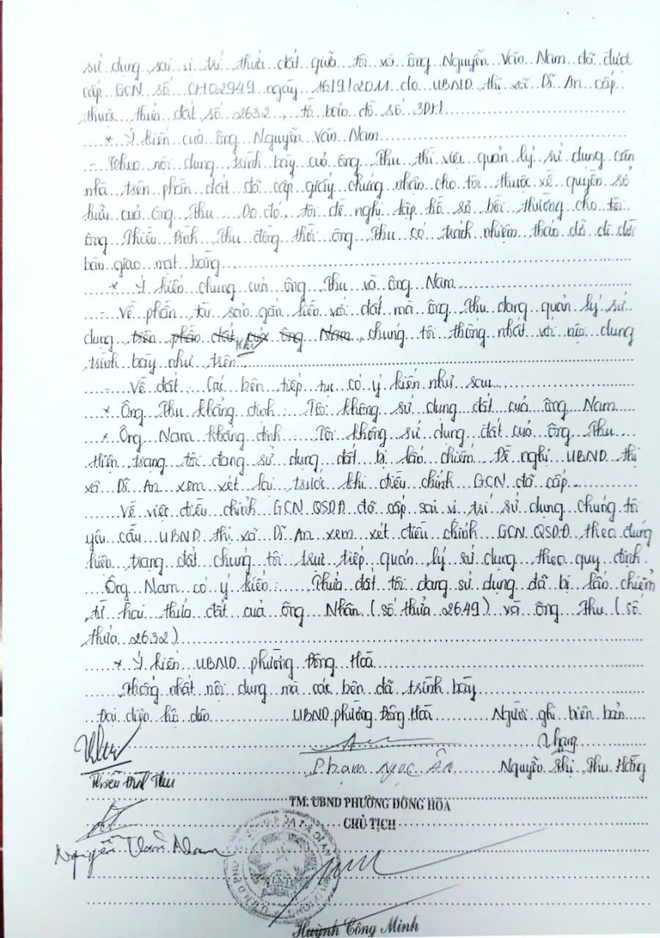 sử dụng sai vị trí thửa đất giữa tôi và ông Nguyễn Văn Nam đã được
cấp GCN số CH02949 ngày 16/9/2011 do UBND thị xã Dĩ An cấp
thuộc thửa đất số 2632, tờ bản đồ số 3DH
* Ý kiến của ông Nguyễn Văn Nam
- Theo nội dung trình bày của ông Thu thì việc quản lý sử dụng căn
nhà trên phần đất đã cấp giấy chứng nhận cho tôi thuộc về quyền sở
hữu của ông Thu. Do đó, tôi đề nghị lập hồ sơ bồi thường cho tôi
ông Thiều Đình Thu đồng thời ông Thu có trách nhiệm tháo dỡ di dời
bàn giao mặt bằng
* Ý kiến chung của ông Thu và ông Nam
- Về phần tài sản gắn liền với đất mà ông Thu đang quản lý sử
dụng trên phần đất của ông Nam chúng tôi thống nhất với nội dung
trình bày như trên
- Về đất: Các bên tiếp tục có ý kiến như sau
* Ông Thu khẳng định: Tôi không sử dụng đất của ông Nam
* Ông Nam khẳng định: Tôi không sử dụng đất của ông Thu
Hiện trạng tôi đang sử dụng đất bị lấn chiếm. Đề nghị UBND thị
xã Dĩ An xem xét lại trước khi điều chỉnh GCN đã cấp
Về việc điều chỉnh GCN QSDĐ đã cấp sai vị trí sử dụng chúng tôi
yêu cầu UBND thị xã Dĩ An xem xét điều chỉnh GCN QSDĐ theo đúng
hiện trạng đất chúng tôi trực tiếp quản lý sử dụng theo quy định
Ông Nam có ý kiến: Thửa đất tôi đang sử dụng đã bị lấn chiếm
từ hai thửa đất của ông Nhân (số thửa 2649) và ông Thu (số
thửa 2632)
* Ý kiến UBND phường Đông Hoà
Thống nhất nội dung mà các bên đã trình bày
Đại diện hộ dân UBND phường Đông Hoà Người ghi biên bản
Thiều Đình Thu Phạm Ngọc Ân Nguyễn Thị Thu Hồng
TM. UBND PHƯỜNG ĐÔNG HÒA
CHỦ TỊCH
Nguyễn Văn Nam
Huỳnh Công Minh